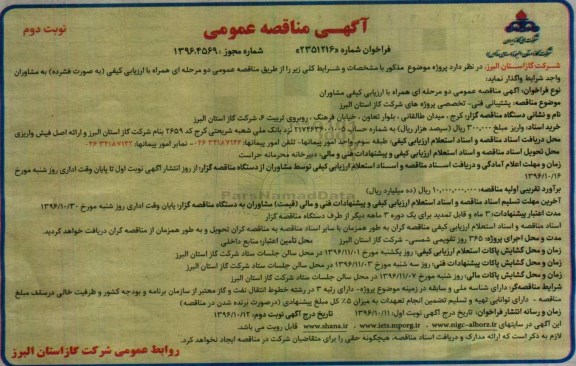 آگهی مناقصه عمومی
نوبت دوم
فراخوان شماره «۲۳۵۱۲۱۶»
شماره مجوز : ۱۳۹۶.۴۵۶۹
شرکت گاز استان البرز، در نظر دارد پروژه موضوع مذکور با مشخصات و شرایط کلی زیر را از طریق مناقصه عمومی دو مرحله ای همراه با ارزیابی کیفی (به صورت فشرده) به مشاوران
واجد شرایط واگذار نماید:
نوع فراخوان: آگهی مناقصه عمومی دو مرحله ای همراه با ارزیابی کیفی مشاوران
موضوع مناقصه: پشتیبانی فنی- تخصصی پروژه های شرکت گاز استان البرز
نام و نشانی دستگاه مناقصه گزار: کرج ، میدان طالقانی ، بلوار تعاون ، خیابان فرهنگ ، روبروی تربیت ۶، شرکت گاز استان البرز
خرید اسناد: واریز مبلغ ۳۰۰,۰۰۰ ریال (سیصد هزار ریال) به شماره حساب ۲۱۷۴۶۳۶۰۰۱۰۰۵ نزد بانک ملی شعبه شریعتی کرج کد ۲۶۵۹ بنام شرکت گاز استان البرز و ارائه اصل فیش واریزی
محل دریافت اسناد مناقصه و اسناد استعلام ارزیابی کیفی: طبقه سوم، واحد امور پیمانها، تلفن امور پیمانها: ۳۴۱۸۷۱۴۳ ۰۲۶ - نمابر امور پیمانها: ۳۴۱۸۷۱۳۲ ۰۲۶
محل تحویل اسناد مناقصه و اسناد استعلام ارزیابی کیفی و پیشنهادات فنی و مالی: دبیرخانه محرمانه حراست
زمان و مهلت اعلام آمادگی و دریافت اسناد مناقصه و اسناد استعلام ارزیابی کیفی توسط مشاوران از دستگاه مناقصه گزار: از روز انتشار آگهی نوبت اول تا پایان وقت اداری روز شنبه مورخ
۱۳۹۶/۱۰/۱۶
برآورد تقریبی اولیه مناقصه: ۱۰,۰۰۰,۰۰۰,۰۰۰ ریال (ده میلیارد ریال)
آخرین مهلت تسلیم اسناد مناقصه و اسناد استعلام ارزیابی کیفی و پیشنهادات فنی و مالی (قیمت) مشاوران به دستگاه مناقصه گزار: پایان وقت اداری روز شنبه مورخ ۱۳۹۶/۱۰/۳۰
مدت اعتبار پیشنهادات: ۳ ماه و قابل تمدید برای یک دوره ۳ ماهه دیگر از طرف دستگاه مناقصه گزار
اسناد مناقصه و اسناد استعلام ارزیابی کیفی مناقصه گران به طور همزمان با سایر اسناد مناقصه به مناقصه گران تحویل و به طور همزمان از مناقصه گران دریافت خواهد گردید.
مدت و محل اجرای پروژه: ۳۶۵ روز تقویمی شمسی- شرکت گاز استان البرز
محل تامین اعتبار: منابع داخلی
زمان و محل گشایش پاکات استعلام ارزیابی کیفی: روز یکشنبه مورخ ۱۳۹۶/۱۱/۰۱ در محل سالن جلسات ستاد شرکت گاز استان البرز
زمان و محل گشایش پاکات پیشنهادات فنی: روز سه شنبه مورخ ۱۳۹۶/۱۱/۰۳ در محل سالن جلسات ستاد شرکت گاز استان البرز
زمان و محل گشایش پاکات مالی: روز شنبه مورخ ۱۳۹۶/۱۱/۰۷ در محل سالن جلسات ستاد شرکت گاز استان البرز
شرایط مناقصه گر: دارای شناسه ملی و سابقه در زمینه موضوع پروژه- دارای رتبه ۳ در رشته خطوط انتقال نفت و گاز معتبر از سازمان برنامه و بودجه کشور و ظرفیت خالی در سقف مبلغ
مناقصه - دارای توانایی تهیه و تسلیم تضمین انجام تعهدات به میزان ۵٪ کل مبلغ پیشنهادی (در صورت برنده شدن در مناقصه)
زمان و رسانه انتشار فراخوان: تاریخ درج آگهی نوبت اول: ۱۳۹۶/۱۰/۱۱ تاریخ درج آگهی نوبت دوم: ۱۳۹۶/۱۰/۱۲
این آگهی در سایتهای www.nigc-alborz.ir ، www.iets.mporg.ir ، www.shana.ir قابل رویت می باشد.
لازم به ذکر است که ارائه مدارک و دریافت اسناد مناقصه، هیچگونه حقی را برای متقاضیان شرکت در مناقصه ایجاد نخواهد کرد.
روابط عمومی شرکت گاز استان البرز
ParsNamadData